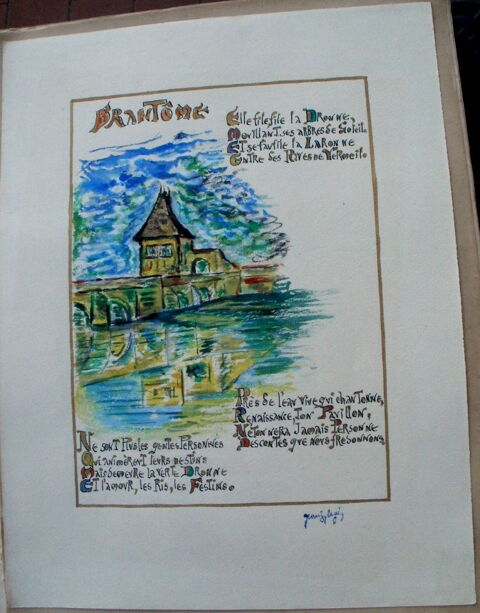 BRANTÔME
Elle file, file la Dronne,
Mouillant ses arbres de soleil
Et se faufile la Laronne
Entre ses Rives de Vermeil.
Près de l'eau vive qui chantonne,
Renaissance, ton Pavillon,
N'étonnera jamais personne
Des contes que nous fredonnons.
Ne sont plus les gentes personnes
Qui animèrent leurs destins
Mais demeure la verte Dronne
Et l'amour, les Ris, les Festins.